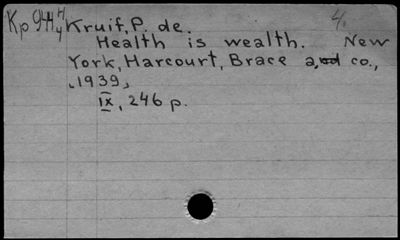 Kruif, P. de.
Health is wealth. New
York, Harcourt, Brace and co.,
1939
IX, 246 p.